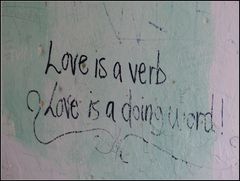 Love is a verb
Love is a doing word!